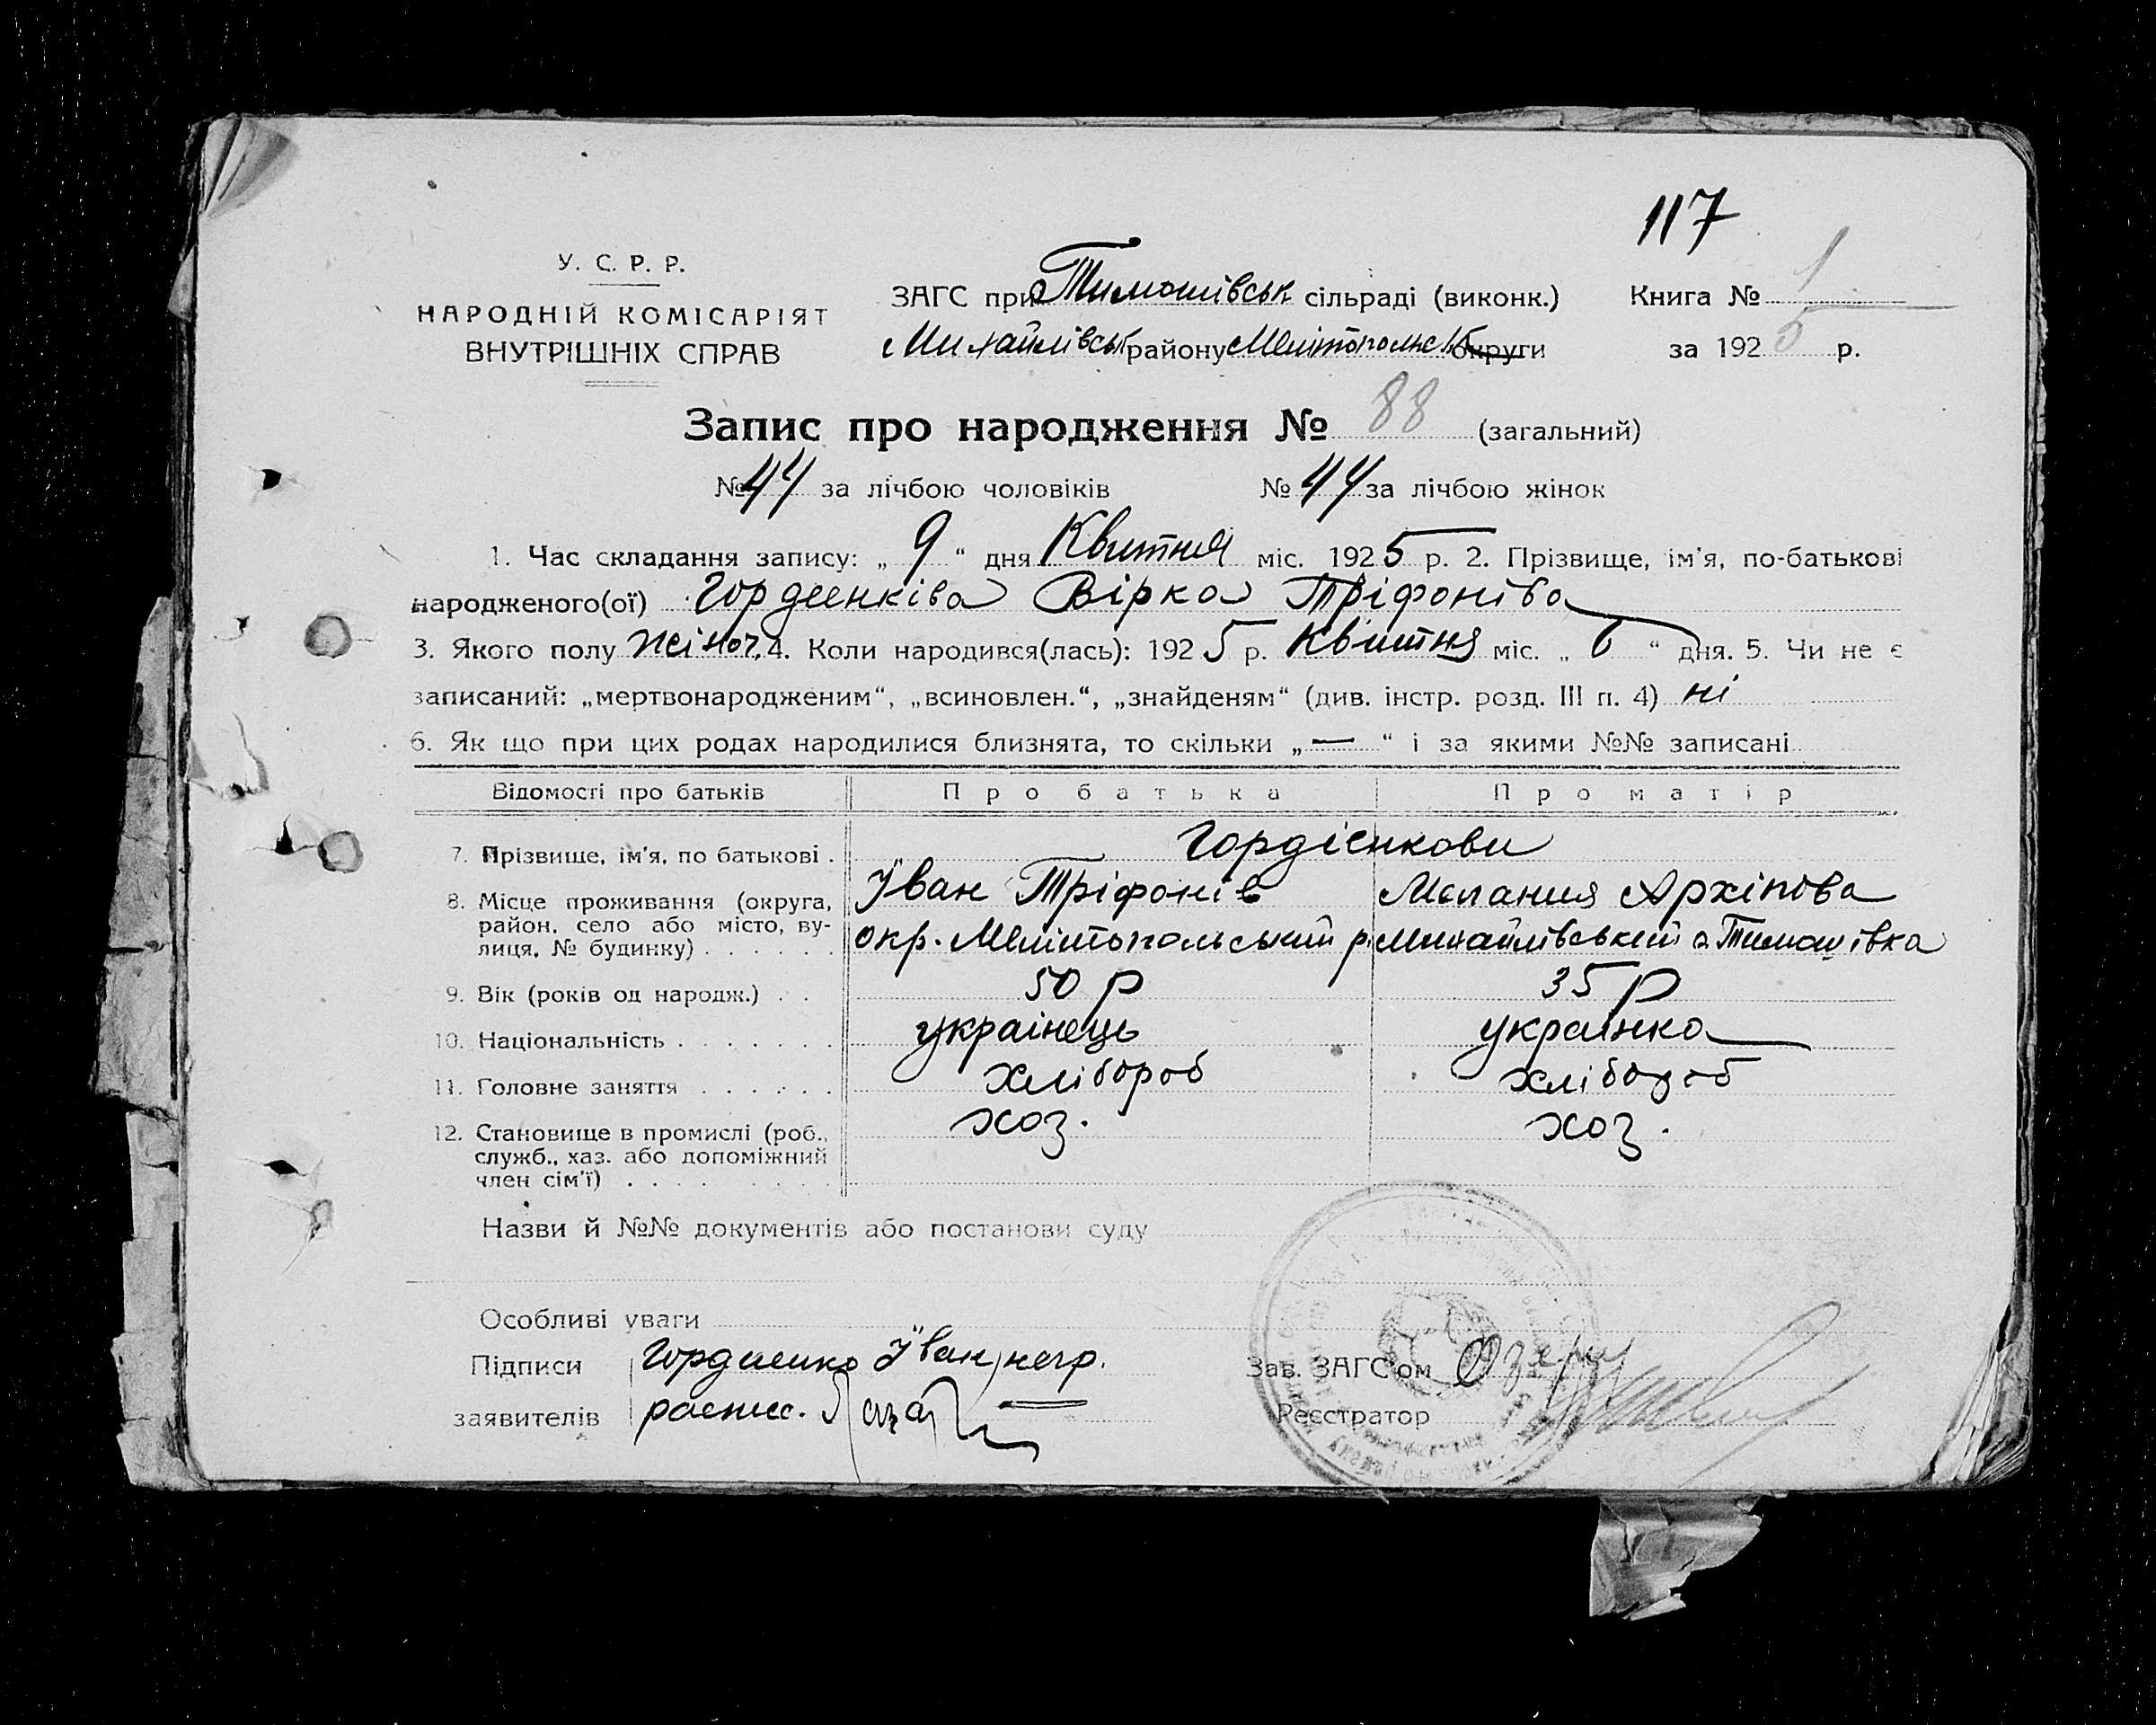 117
У. С. Р. Р.
НАРОДНІЙ КОМІСАРІЯТ
ВНУТРІШНІХ СПРАВ
ЗАГС при Тимошівськ сільраді (виконк.)
Михайлівськ району Мелітопольськ округи
Книга № 1
за 1925 р.
Запис про народження № 88 (загальний)
№ 44 за лічбою чоловіків № 44 за лічбою жінок
1. Час складання запису: „ 9 “ дня Квитня міс. 1925 р. 2. Прізвище, ім'я, по-батькові
народженого(ої) Гордеенківа Вірка Тріфонівa
3. Якого полу жіноч. 4. Коли народився(лась): 1925 р. Квитня міс. „ 6 “ дня. 5. Чи не є
записаний: „мертвонародженим“, „всиновлен.“, „знайденям“ (див. інстр. розд. III п. 4) ні
6. Як що при цих родах народилися близнята, то скільки „ — “ і за якими №№ записані
Відомості про батьків Про батька Про матір
7. Прізвище, ім'я, по батькові . Гордієнкови
Іван Тріфонів Мелания Архіпова
8. Місце проживання (округа,
район, село або місто, ву-
лиця, № будинку) . . . . . . окр. Мелітопольський р. Михайлівський с. Тимошівка
9. Вік (років од народж.) . . 50 р 35 р
10. Національність . . . . . . . украінець украінка
11. Головне заняття . . . . . . хлібороб хлібороб
12. Становище в промислі (роб.,
служб., хаз. або допоміжний
член сім'ї) . . . . . . . . . хоз. хоз.
Назви й №№ документів або постанови суду
Особливі уваги
Підписи
заявителів
Гордиенко Іван, негр.
распис.
Зав. ЗАГС'ом
Реєстратор